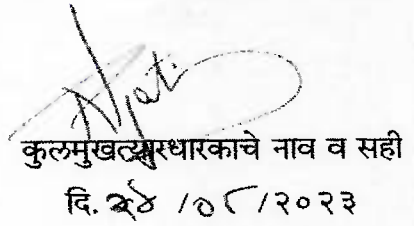 कुलमुखत्यारधारकाचे नाव व सही
दि. २४ /०८/२०२३